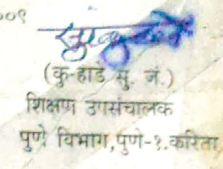 ००९
(कु-हाडे सु. जं.)
शिक्षण उपसंचालक
पुणे विभाग,पुणे-१.करिता